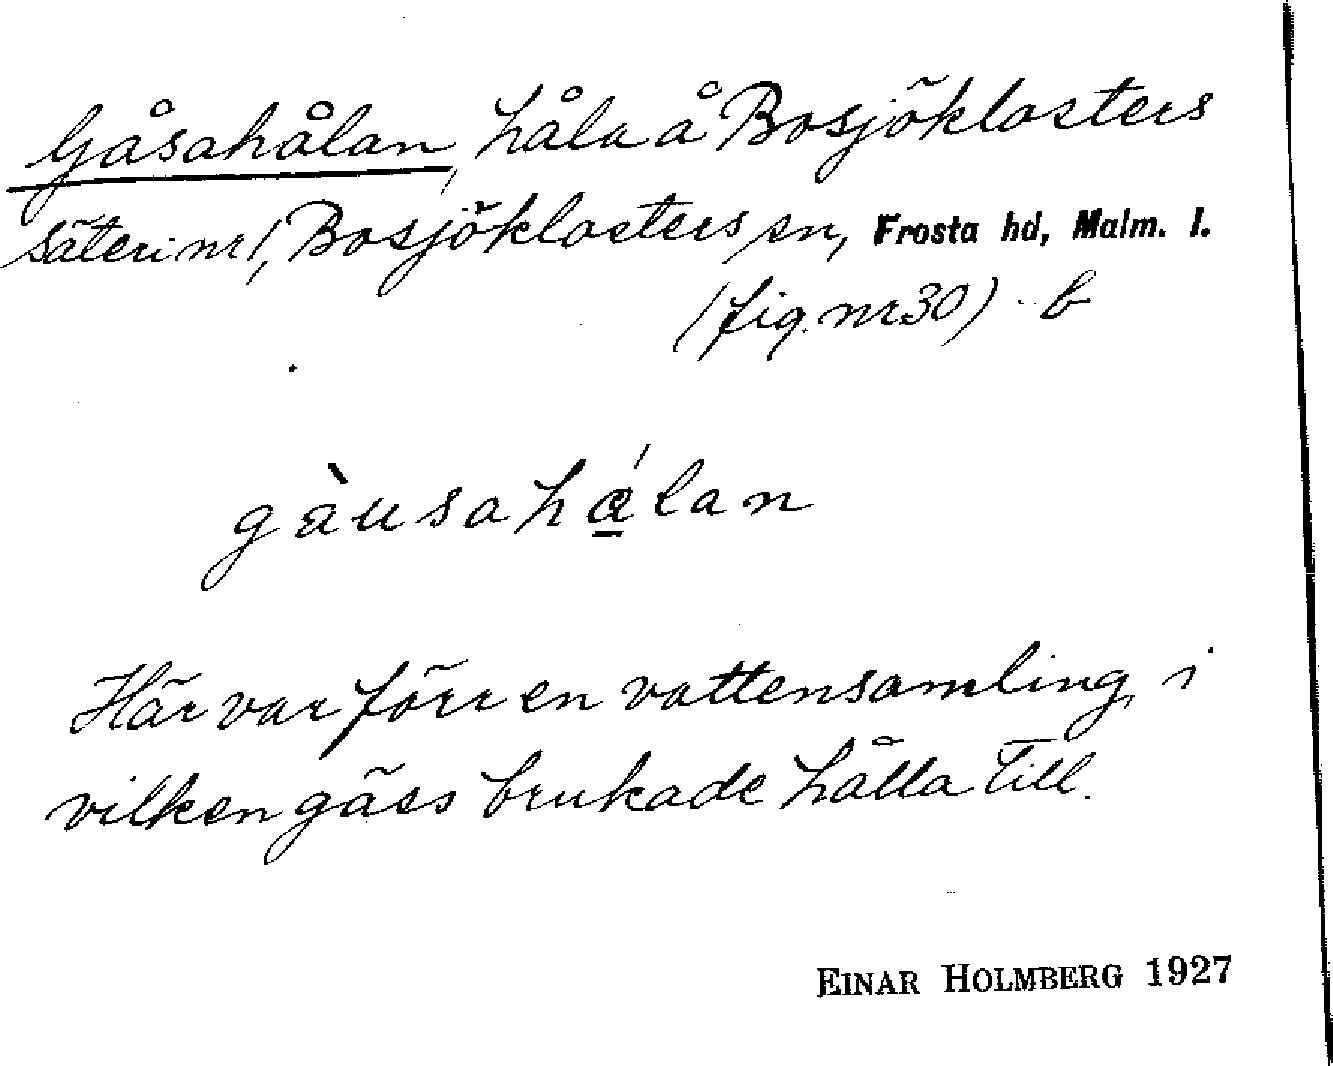 Gåsahålan, håla å Bosjöklosters
säteri nr 1, Bosjöklosters sn, Frosta hd, Malm. l.
(fig. nr 30) b
gàusahálan
Här var förr en vattensamling, i
vilken gäss brukade hålla till.
EINAR HOLMBERG 1927